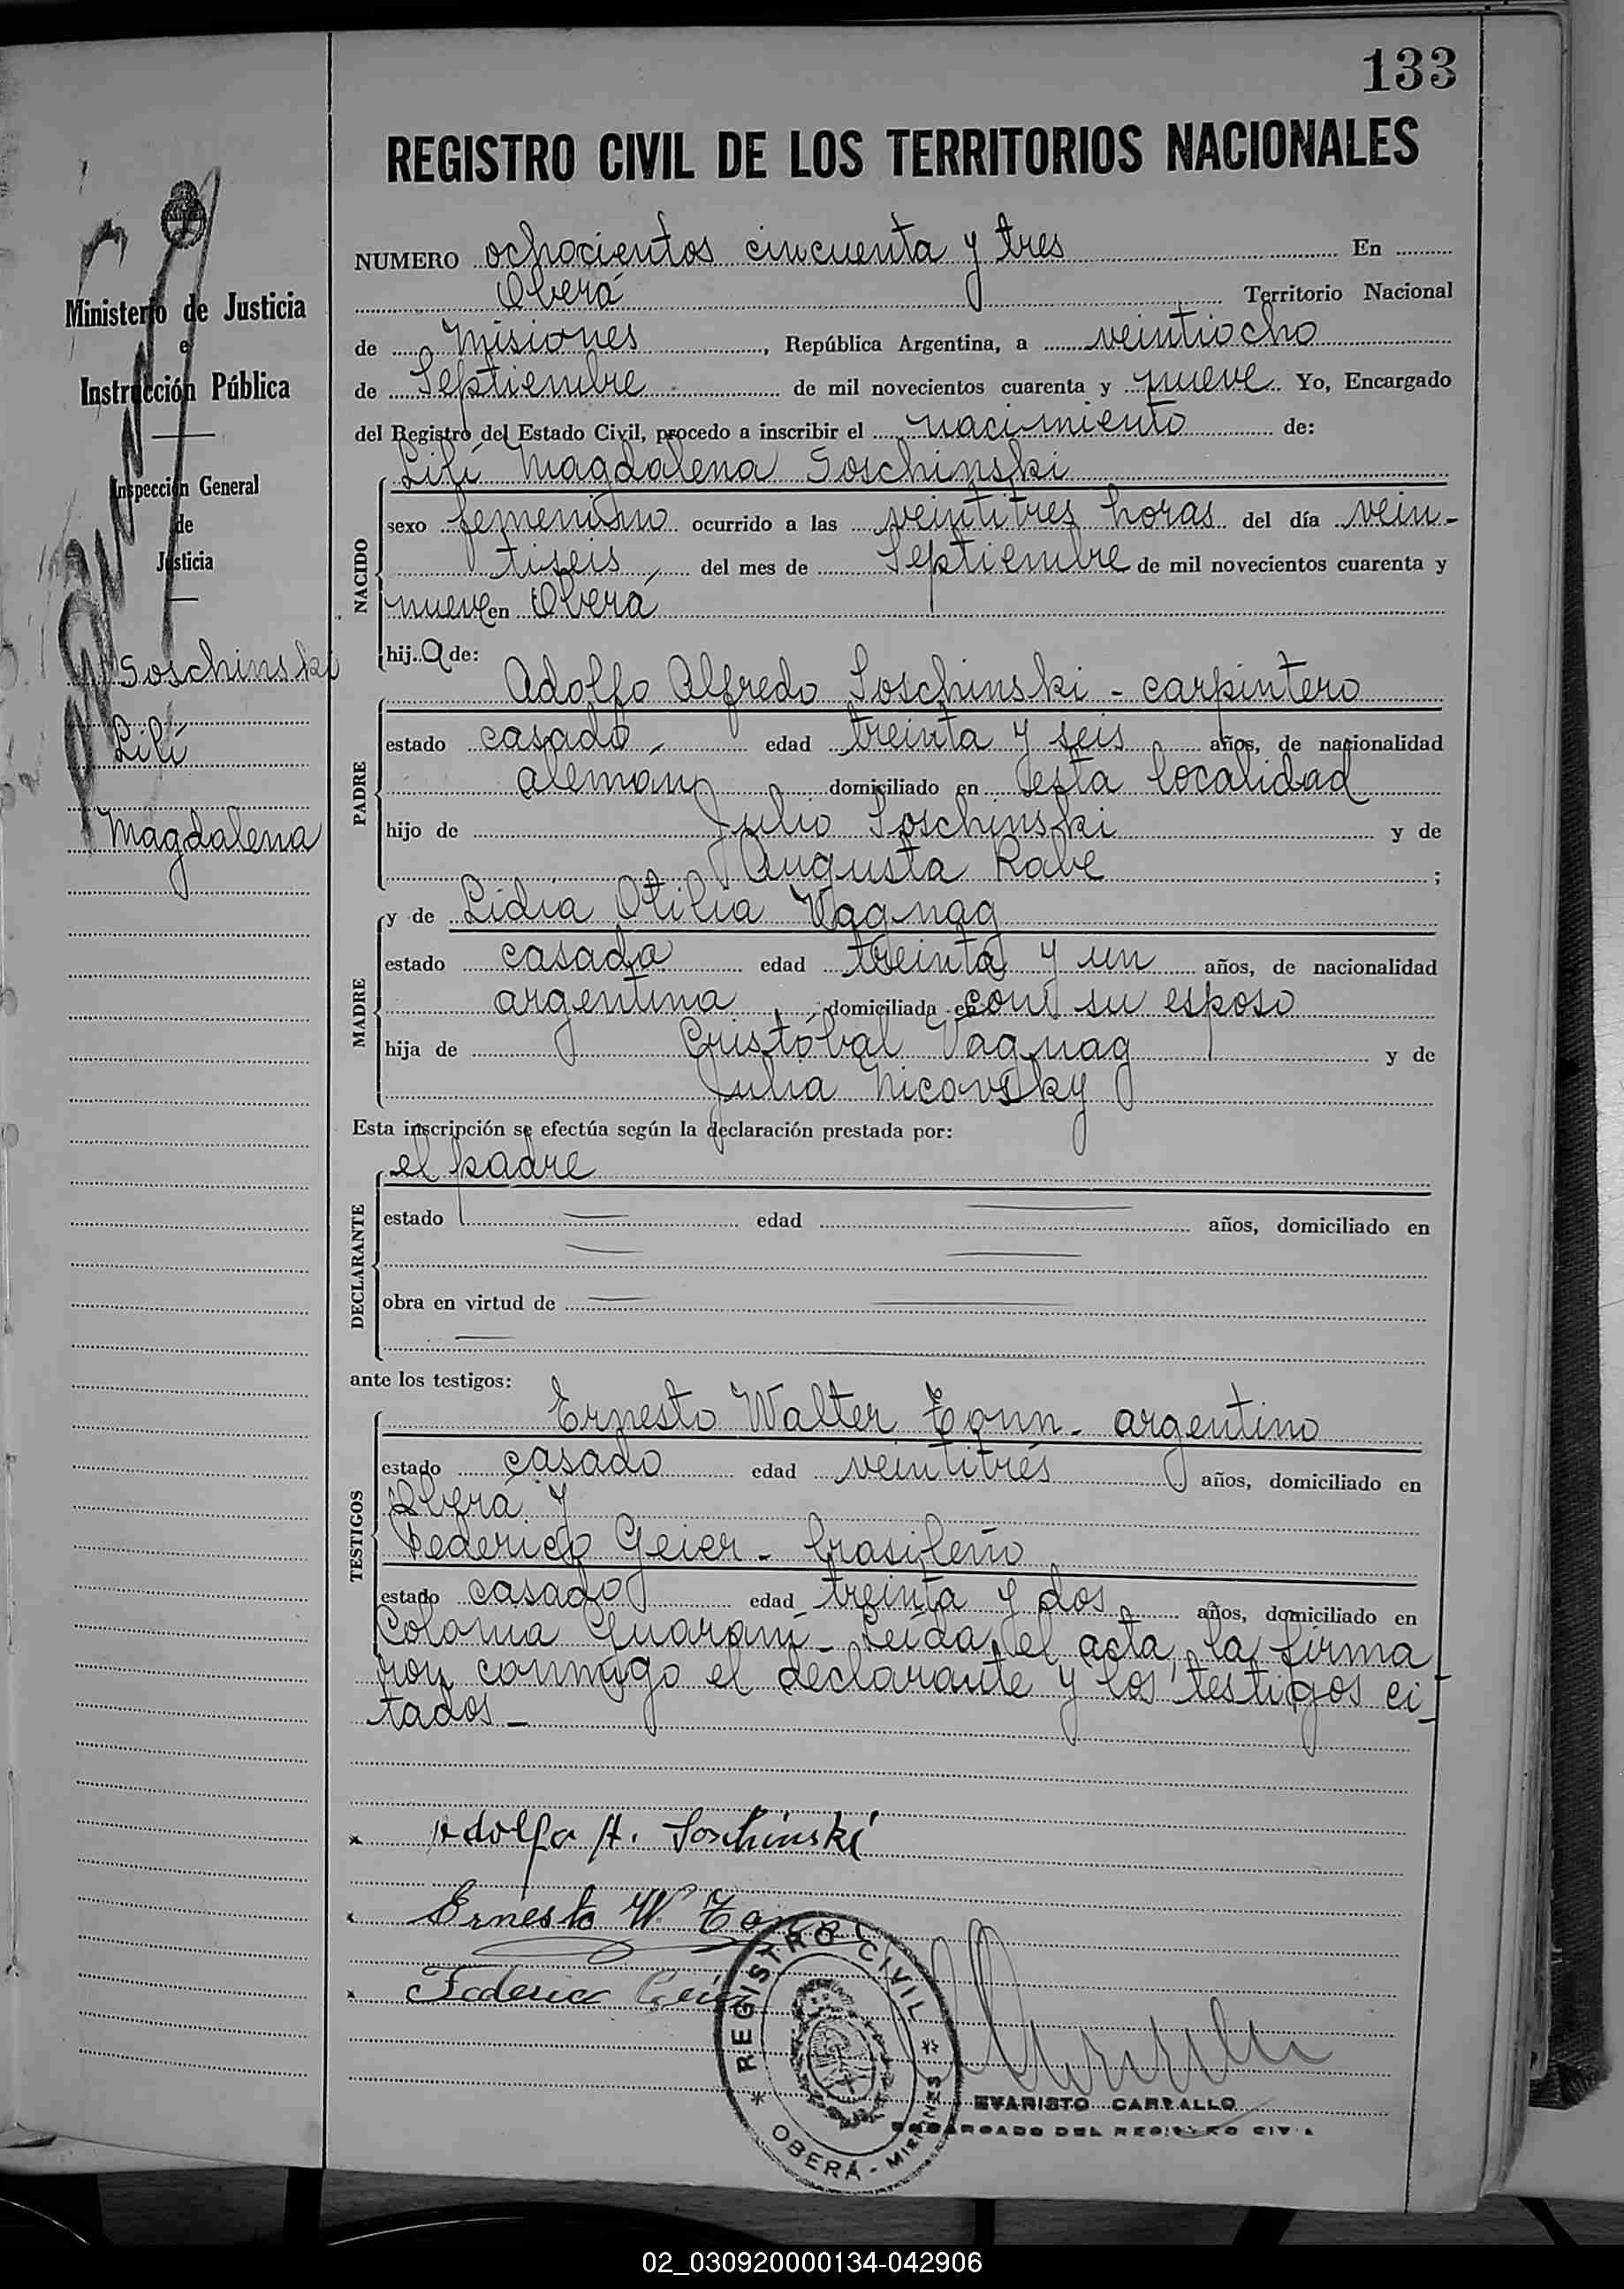 133
REGISTRO CIVIL DE LOS TERRITORIOS NACIONALES
Ministerio de Justicia
e
Instrucción Pública
Inspección General
de
Justicia
Soschinski
Lilí
Magdalena
NUMERO ochocientos cincuenta y tres En
Oberá Territorio Nacional
de Misiones, República Argentina, a veintiocho
de Septiembre de mil novecientos cuarenta y nueve Yo, Encargado
del Registro del Estado Civil, procedo a inscribir el nacimiento de:
Lilí Magdalena Soschinski
NACIDO
sexo femenino ocurrido a las veintitres horas del día vein-
tiseis, del mes de Septiembre de mil novecientos cuarenta y
nueve en Oberá
hija de:
Adolfo Alfredo Soschinski - carpintero
PADRE
estado casado, edad treinta y seis años, de nacionalidad
alemán domiciliado en esta localidad
hijo de Julio Soschinski y de
Augusta Rabe ;
y de Lidia Otilia Vagnag
MADRE
estado casada edad treinta y un años, de nacionalidad
argentina, domiciliada en con su esposo
hija de Cristóbal Vagnag y de
Julia Nicovsky
Esta inscripción se efectúa según la declaración prestada por:
el padre
DECLARANTE
estado edad años, domiciliado en
obra en virtud de
ante los testigos:
Ernesto Walter Tonn - argentino
TESTIGOS
estado casado edad veintitrés años, domiciliado en
Oberá y
Federico Geier - brasileño
estado casado edad treinta y dos años, domiciliado en
Colonia Guaraní - Leída el acta, la firma
ron conmigo el declarante y los testigos ci-
tados -
Adolfo A. Soschinski
Ernesto W. Tonn
Federico
REGISTRO CIVIL
OBERÁ - MISIONES
EVARISTO CARBALLO
ENCARGADO DEL REGISTRO CIVIL
02_030920000134-042906